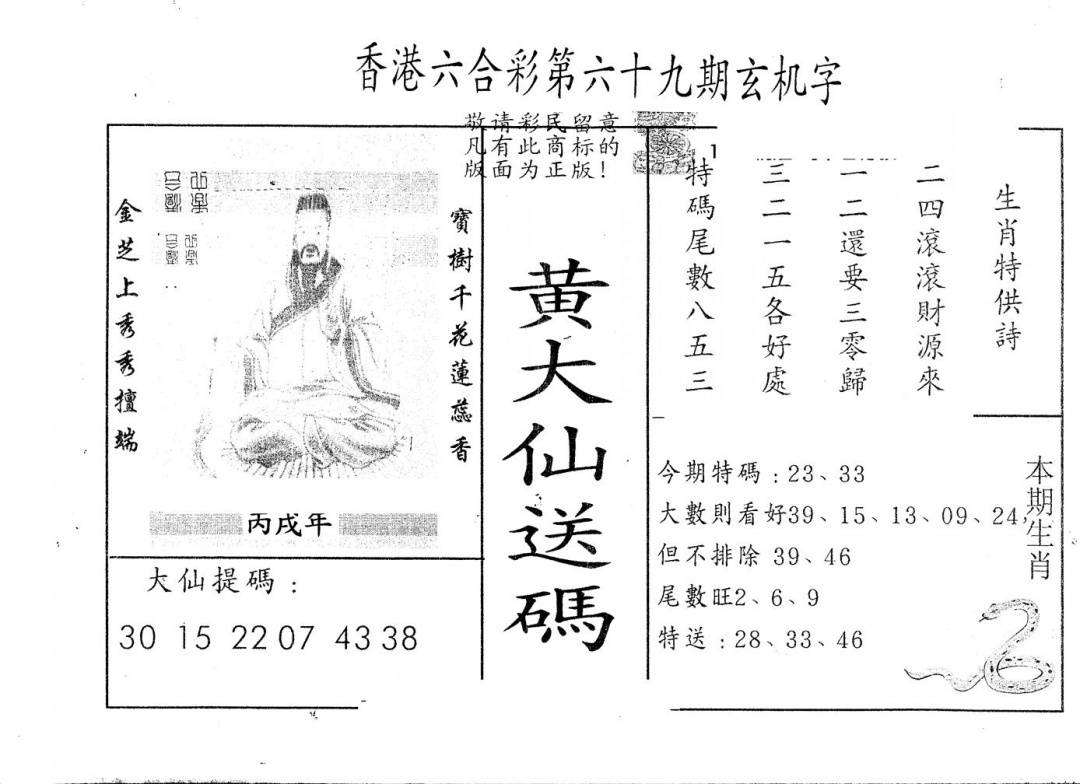 香港六合彩第六十九期玄机字
敬请彩民留意
凡有此商标的
版面为正版!
1
金芝上秀秀擅端
寶樹千花蓮蕊香
丙戌年
大仙提碼:
30 15 22 07 43 38
黄大仙送碼
生肖特供詩
二四滾滾財源來
一二還要三零歸
三二一五各好處
特碼尾數八五三
今期特碼:23、33
大數則看好39、15、13、09、24,
但不排除 39、46
尾數旺2、6、9
特送:28、33、46
本期生肖